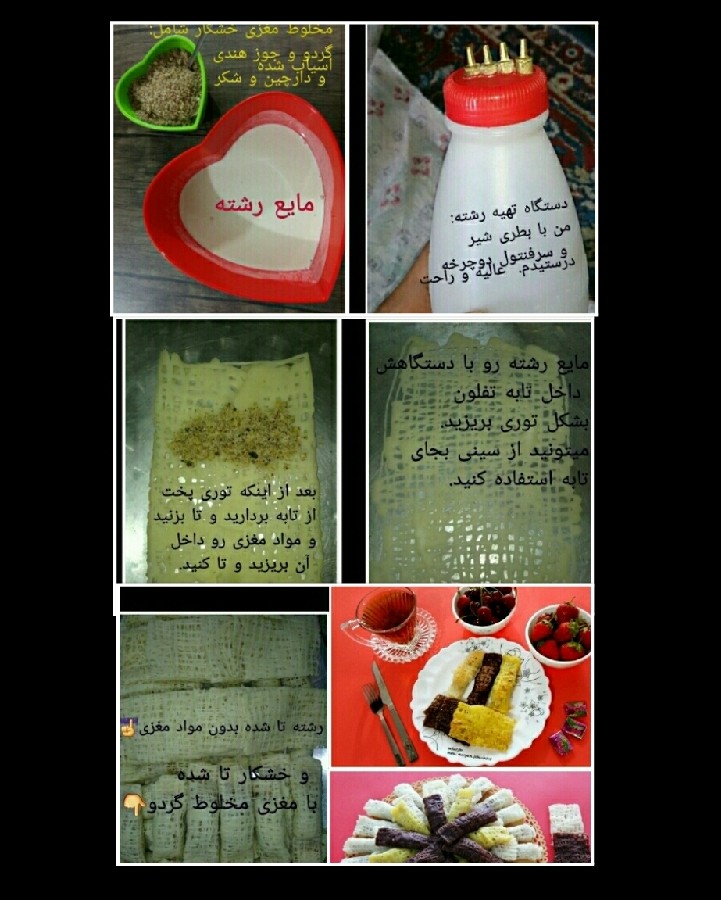 مخلوط مغزی خشکار شامل:
گردو و جوز هندی
آسیاب شده
و دارچین و شکر
مایع رشته
دستگاه تهیه رشته:
من با بطری شیر
و سرفنتول دوچرخه
درستیدم. عالیه و راحت
مایع رشته رو با دستگاهش
داخل تابه تفلون
بشکل توری بریزید.
میتونید از سینی بجای
تابه استفاده کنید.
بعد از اینکه توری پخت
از تابه بردارید و تا بزنید
و مواد مغزی رو داخل
آن بریزید و تا کنید.
رشته تا شده بدون مواد مغزی☝
و خشکار تا شده
با مغزی مخلوط گردو👇